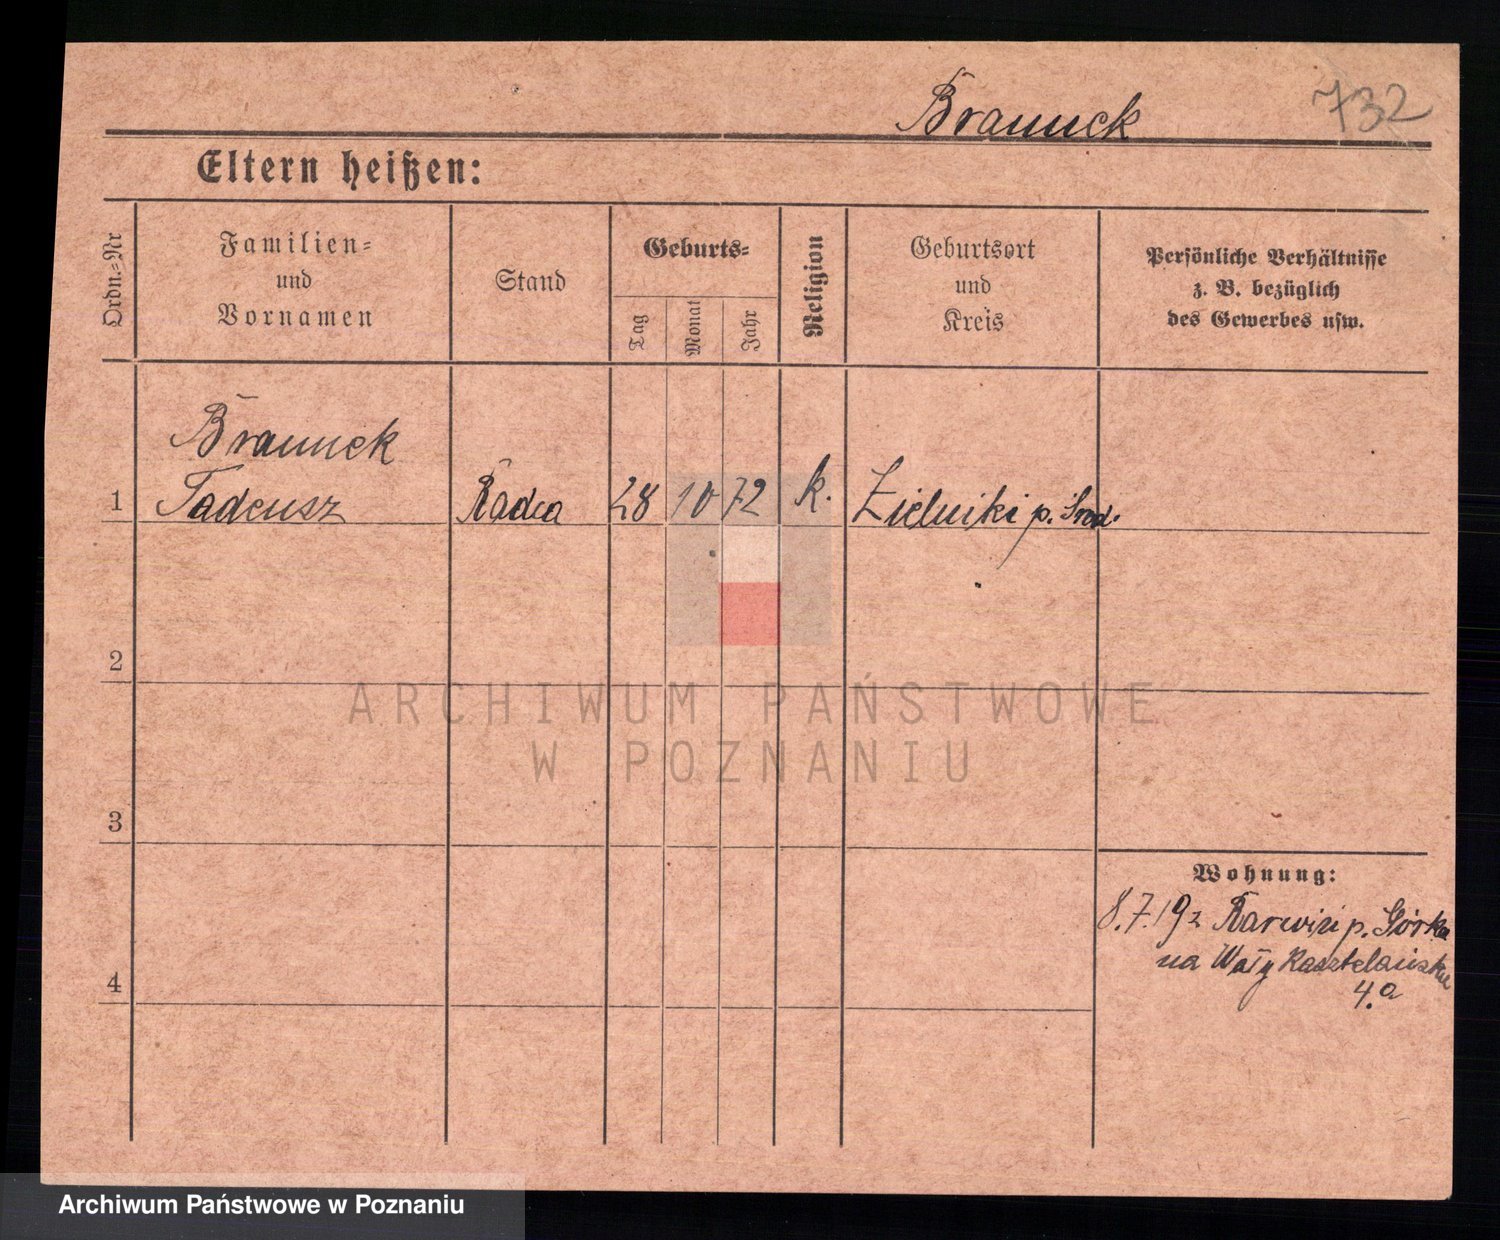 Braunek
732
Eltern heißen:
Ordn.=Nr
Familien=
und
Vornamen
Stand
Geburts=
Tag
Monat
Jahr
Religion
Geburtsort
und
Kreis
Persönliche Verhältnisse
z. B. bezüglich
des Gewerbes usw.
Braunek
1 Tadeusz Radca 28 10 72 k. Zielniki p. Środ.
2
ARCHIWUM PAŃSTWOWE
W POZNANIU
3
Wohnung:
8.7.19 z p. Górka
na Wały Kasztelańskie
4
4.a
Archiwum Państwowe w Poznaniu